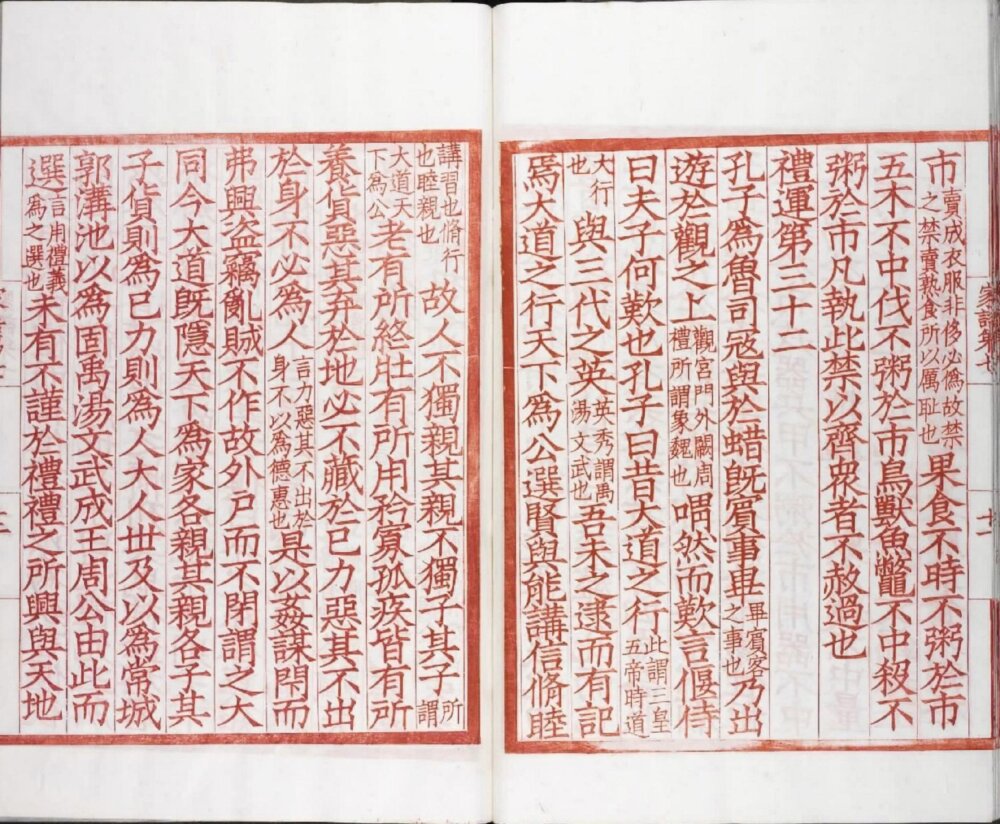 市賣成衣服非侈必偽故禁之禁賣熟食所以厲耻也果食不時不粥於市
五木不中伐不粥於市鳥獸魚鼈不中殺不
粥於市凡執此禁以齊衆者不赦過也
禮運第三十二
孔子為魯司冦與於蜡旣賓事畢畢賓客之事也乃出
遊於觀之上觀宮門外闕周禮所謂象魏也喟然而歎言偃侍
曰夫子何歎也孔子曰昔大道之行此謂三皇五帝時道
大行也與三代之英英秀謂禹湯文武也吾未之逮而有記
焉大道之行天下為公選賢與能講信脩睦
講習也脩行也睦親也故人不獨親其親不獨子其子所謂
大道天下為公老有所終壯有所用矜寡孤疾皆有所
養貨惡其弃於地必不藏於已力惡其不出
於身不必為人言力惡其不出於身不以為德惠也是以姦謀閇而
弗興盜竊亂賊不作故外戸而不閇謂之大
同今大道旣隱天下為家各親其親各子其
子貨則為已力則為人大人丗及以為常城
郭溝池以為固禹湯文武成王周公由此而
選言用禮義為之選也未有不謹於禮禮之所興與天地
家語卷七
十一